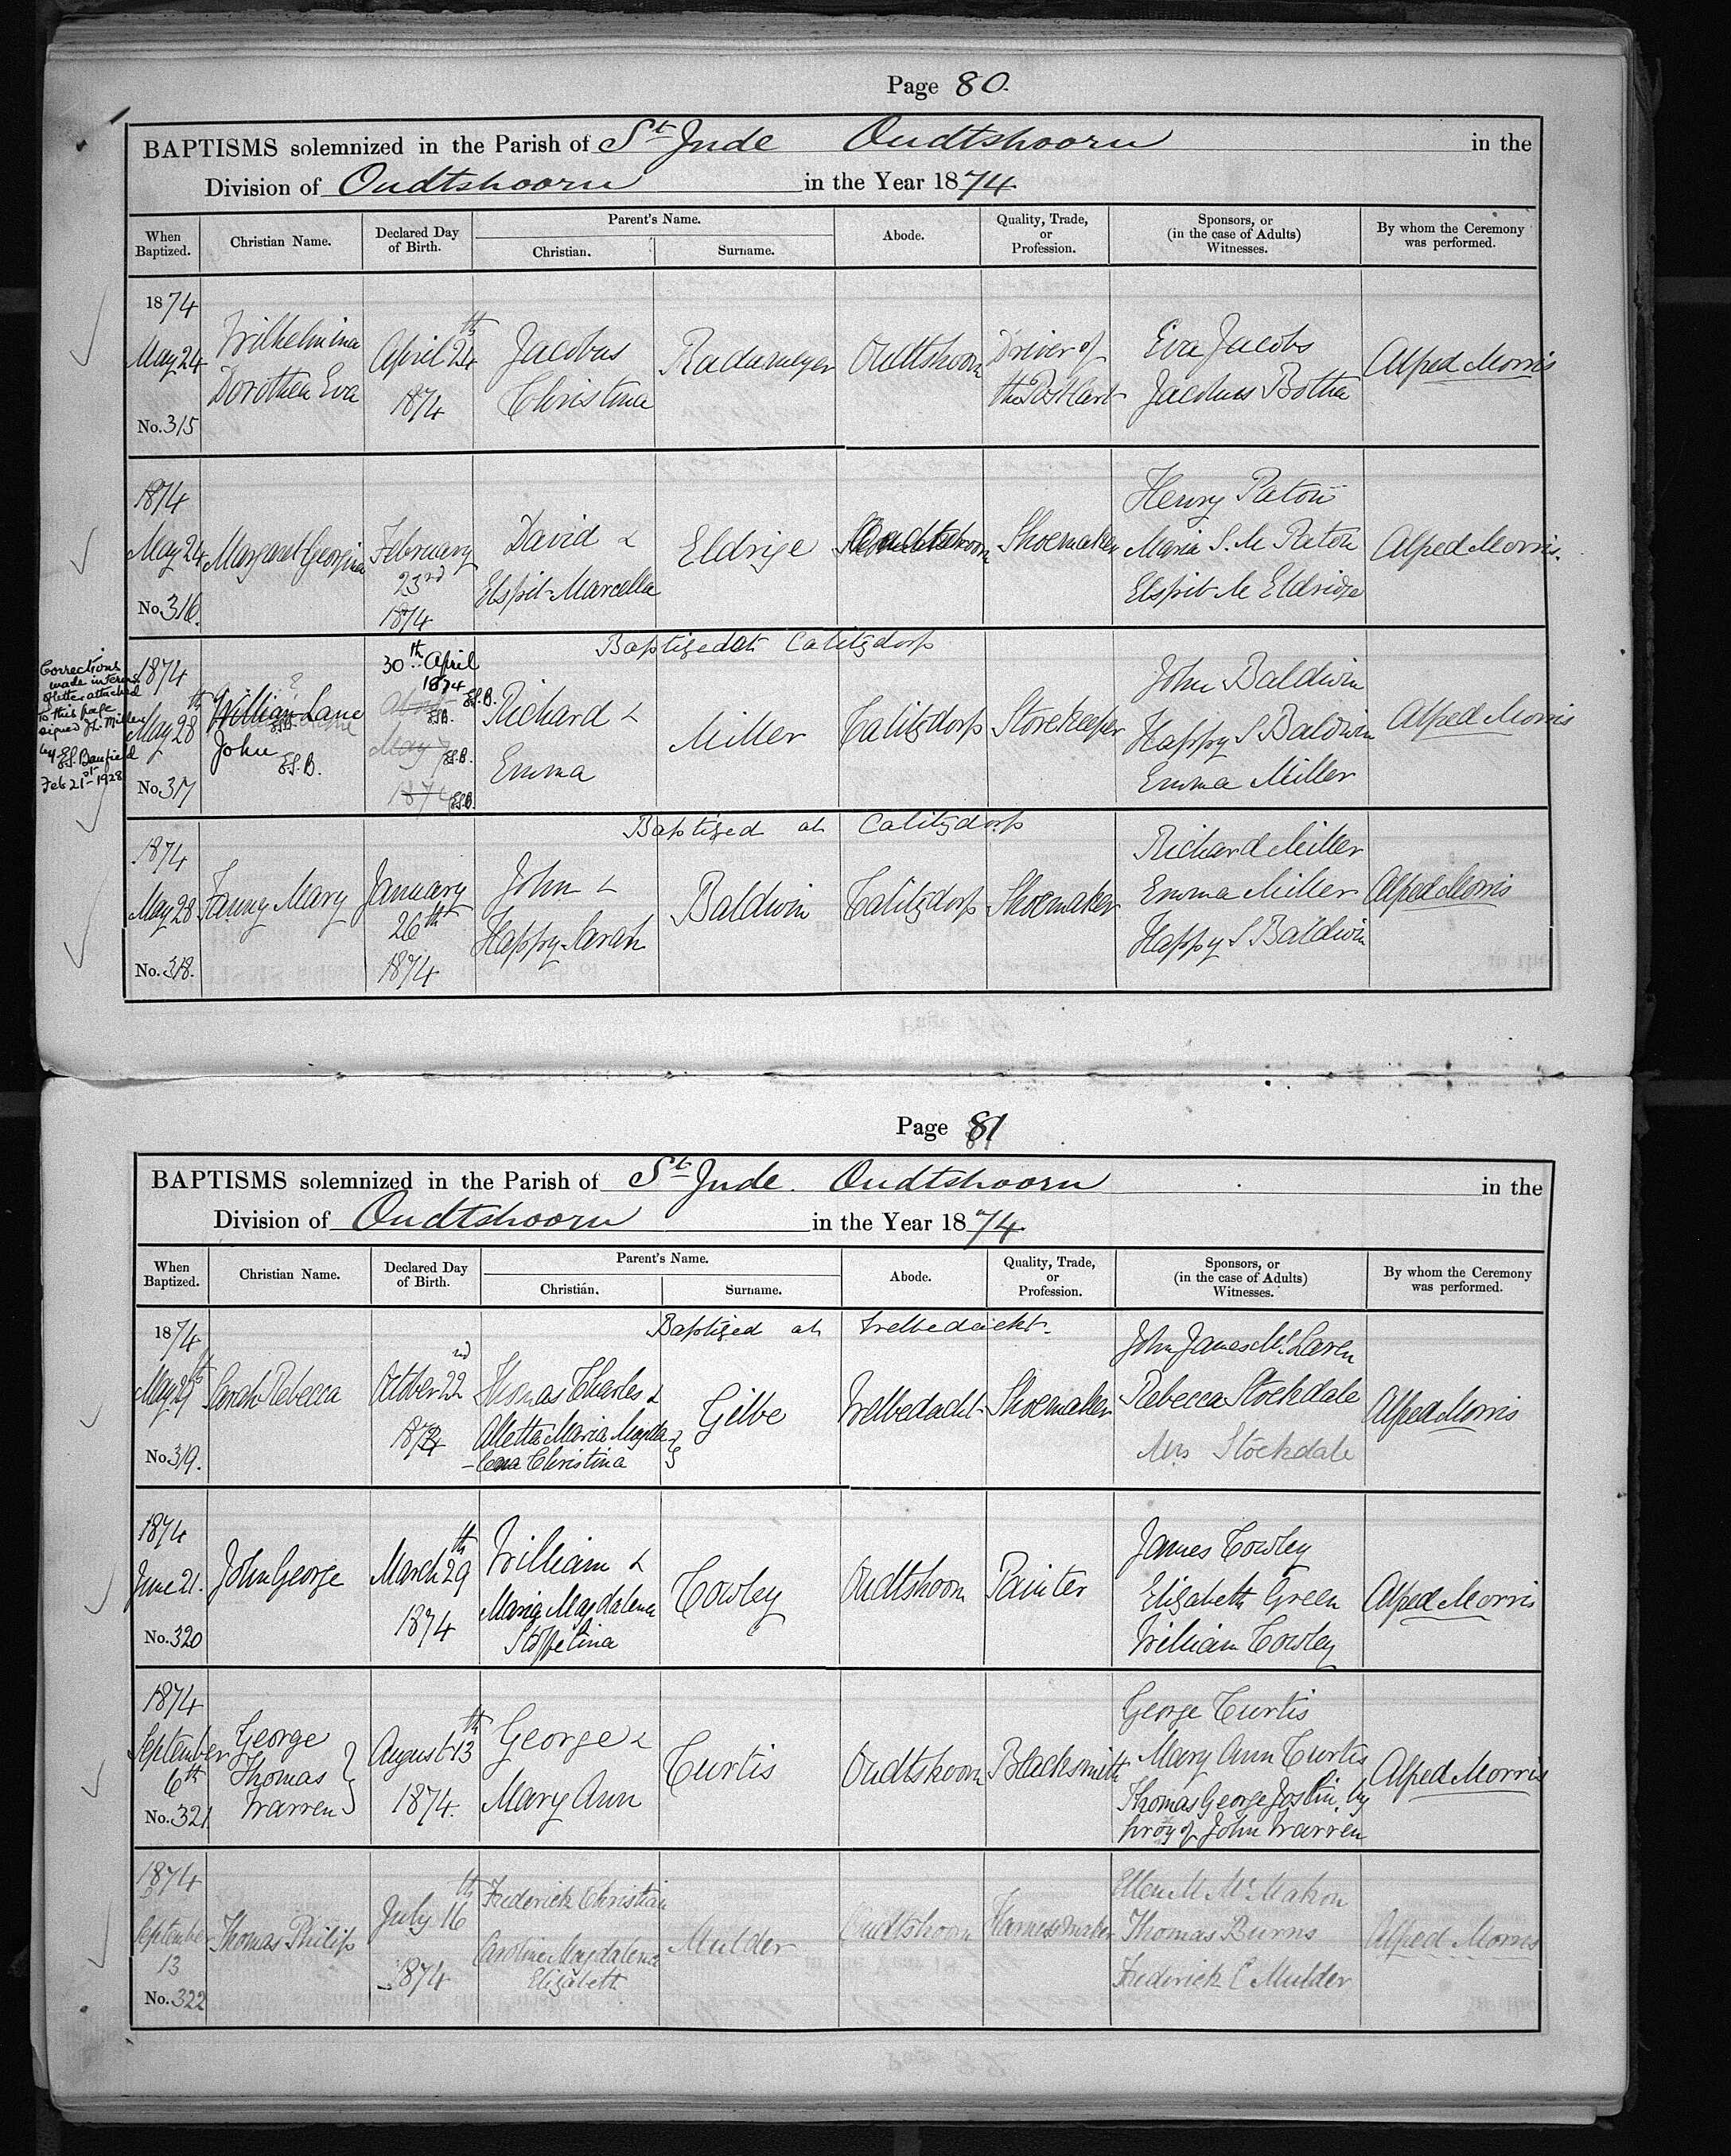 Page 80.
BAPTISMS solemnized in the Parish of St Jude Oudtshoorn in the
Division of Oudtshoorn in the Year 1874.
When Baptized.
Christian Name.
Declared Day of Birth.
Parent's Name.
Christian.
Surname.
Abode.
Quality, Trade, or Profession.
Sponsors, or (in the case of Adults) Witnesses.
By whom the Ceremony was performed.
1874
May 24
No. 315
Wilhelmina
Dorothea Eva
April 24th
1874
Jacobus
Christina
Rademeyer
Oudtshoorn
Driver of
the Post Cart
Eva Jacobs
Jacobus Botha
Alfred Morris
1874
May 24
No. 316.
Margaret Georgina
February
23rd
1874
David &
Elspit Marcella
Eldrige
Oudtshoorn
Shoemaker
Henry Paton
Maria S. M Paton
Elspit M Eldridge
Alfred Morris.
Corrections
made in terms
of letter attached
to this page
signed J.L. Miller
by E.S. Banfield
Feb 21st 1928
Baptized at Calitzdorp
1874
May 28th
No. 317
?
William Lane
E.S.B.
John
E.S.B.
30th April
1874
E.S.B.
E.S.B.
May 7
E.S.B.
1874
E.S.B.
Richard &
Emma
Miller
Calitzdorp
Storekeeper
John Baldwin
Happy S Baldwin
Emma Miller
Alfred Morris
Baptized at Calitzdorp
1874
May 28
No. 318.
Fanny Mary
January
26th
1874
John &
Happy Sarah
Baldwin
Calitzdorp
Shoemaker
Richard Miller
Emma Miller
Happy S Baldwin
Alfred Morris
Page 81
BAPTISMS solemnized in the Parish of St Jude. Oudtshoorn in the
Division of Oudtshoorn in the Year 1874.
When Baptized.
Christian Name.
Declared Day of Birth.
Parent's Name.
Christian.
Surname.
Abode.
Quality, Trade, or Profession.
Sponsors, or (in the case of Adults) Witnesses.
By whom the Ceremony was performed.
Baptized at Welbedacht.
1874
May 29th
No. 319.
Sarah Rebecca
October 22nd
Thomas Charles &
Alletta Maria Magda
-lena Christina
Gilbe
Welbedacht
Shoemaker
John James McLaren
Rebecca Stockdale
Mrs Stockdale
Alfred Morris
1874
June 21.
No. 320
John George
March 29th
1874
William &
Maria Magdalena
Cowley
Oudtshoorn
Painter
James Cowley
Elizabeth Green
William Cowley
Alfred Morris
1874
September
6th
No. 321
George
Thomas
Warren
August 13th
1874.
George &
Mary Ann
Curtis
Oudtshoorn
Blacksmith
George Curtis
Mary Ann Curtis
Thomas George Joslin, by
proxy of John Warren
Alfred Morris
1874
September
13
No. 322
Thomas Philip
July 16th
1874
Frederick Christian
Caroline Magdalena
Elizabeth
Mulder
Oudtshoorn
Harnessmaker
Ellen M McMahon
Thomas Burns
Frederick C Mulder
Alfred Morris